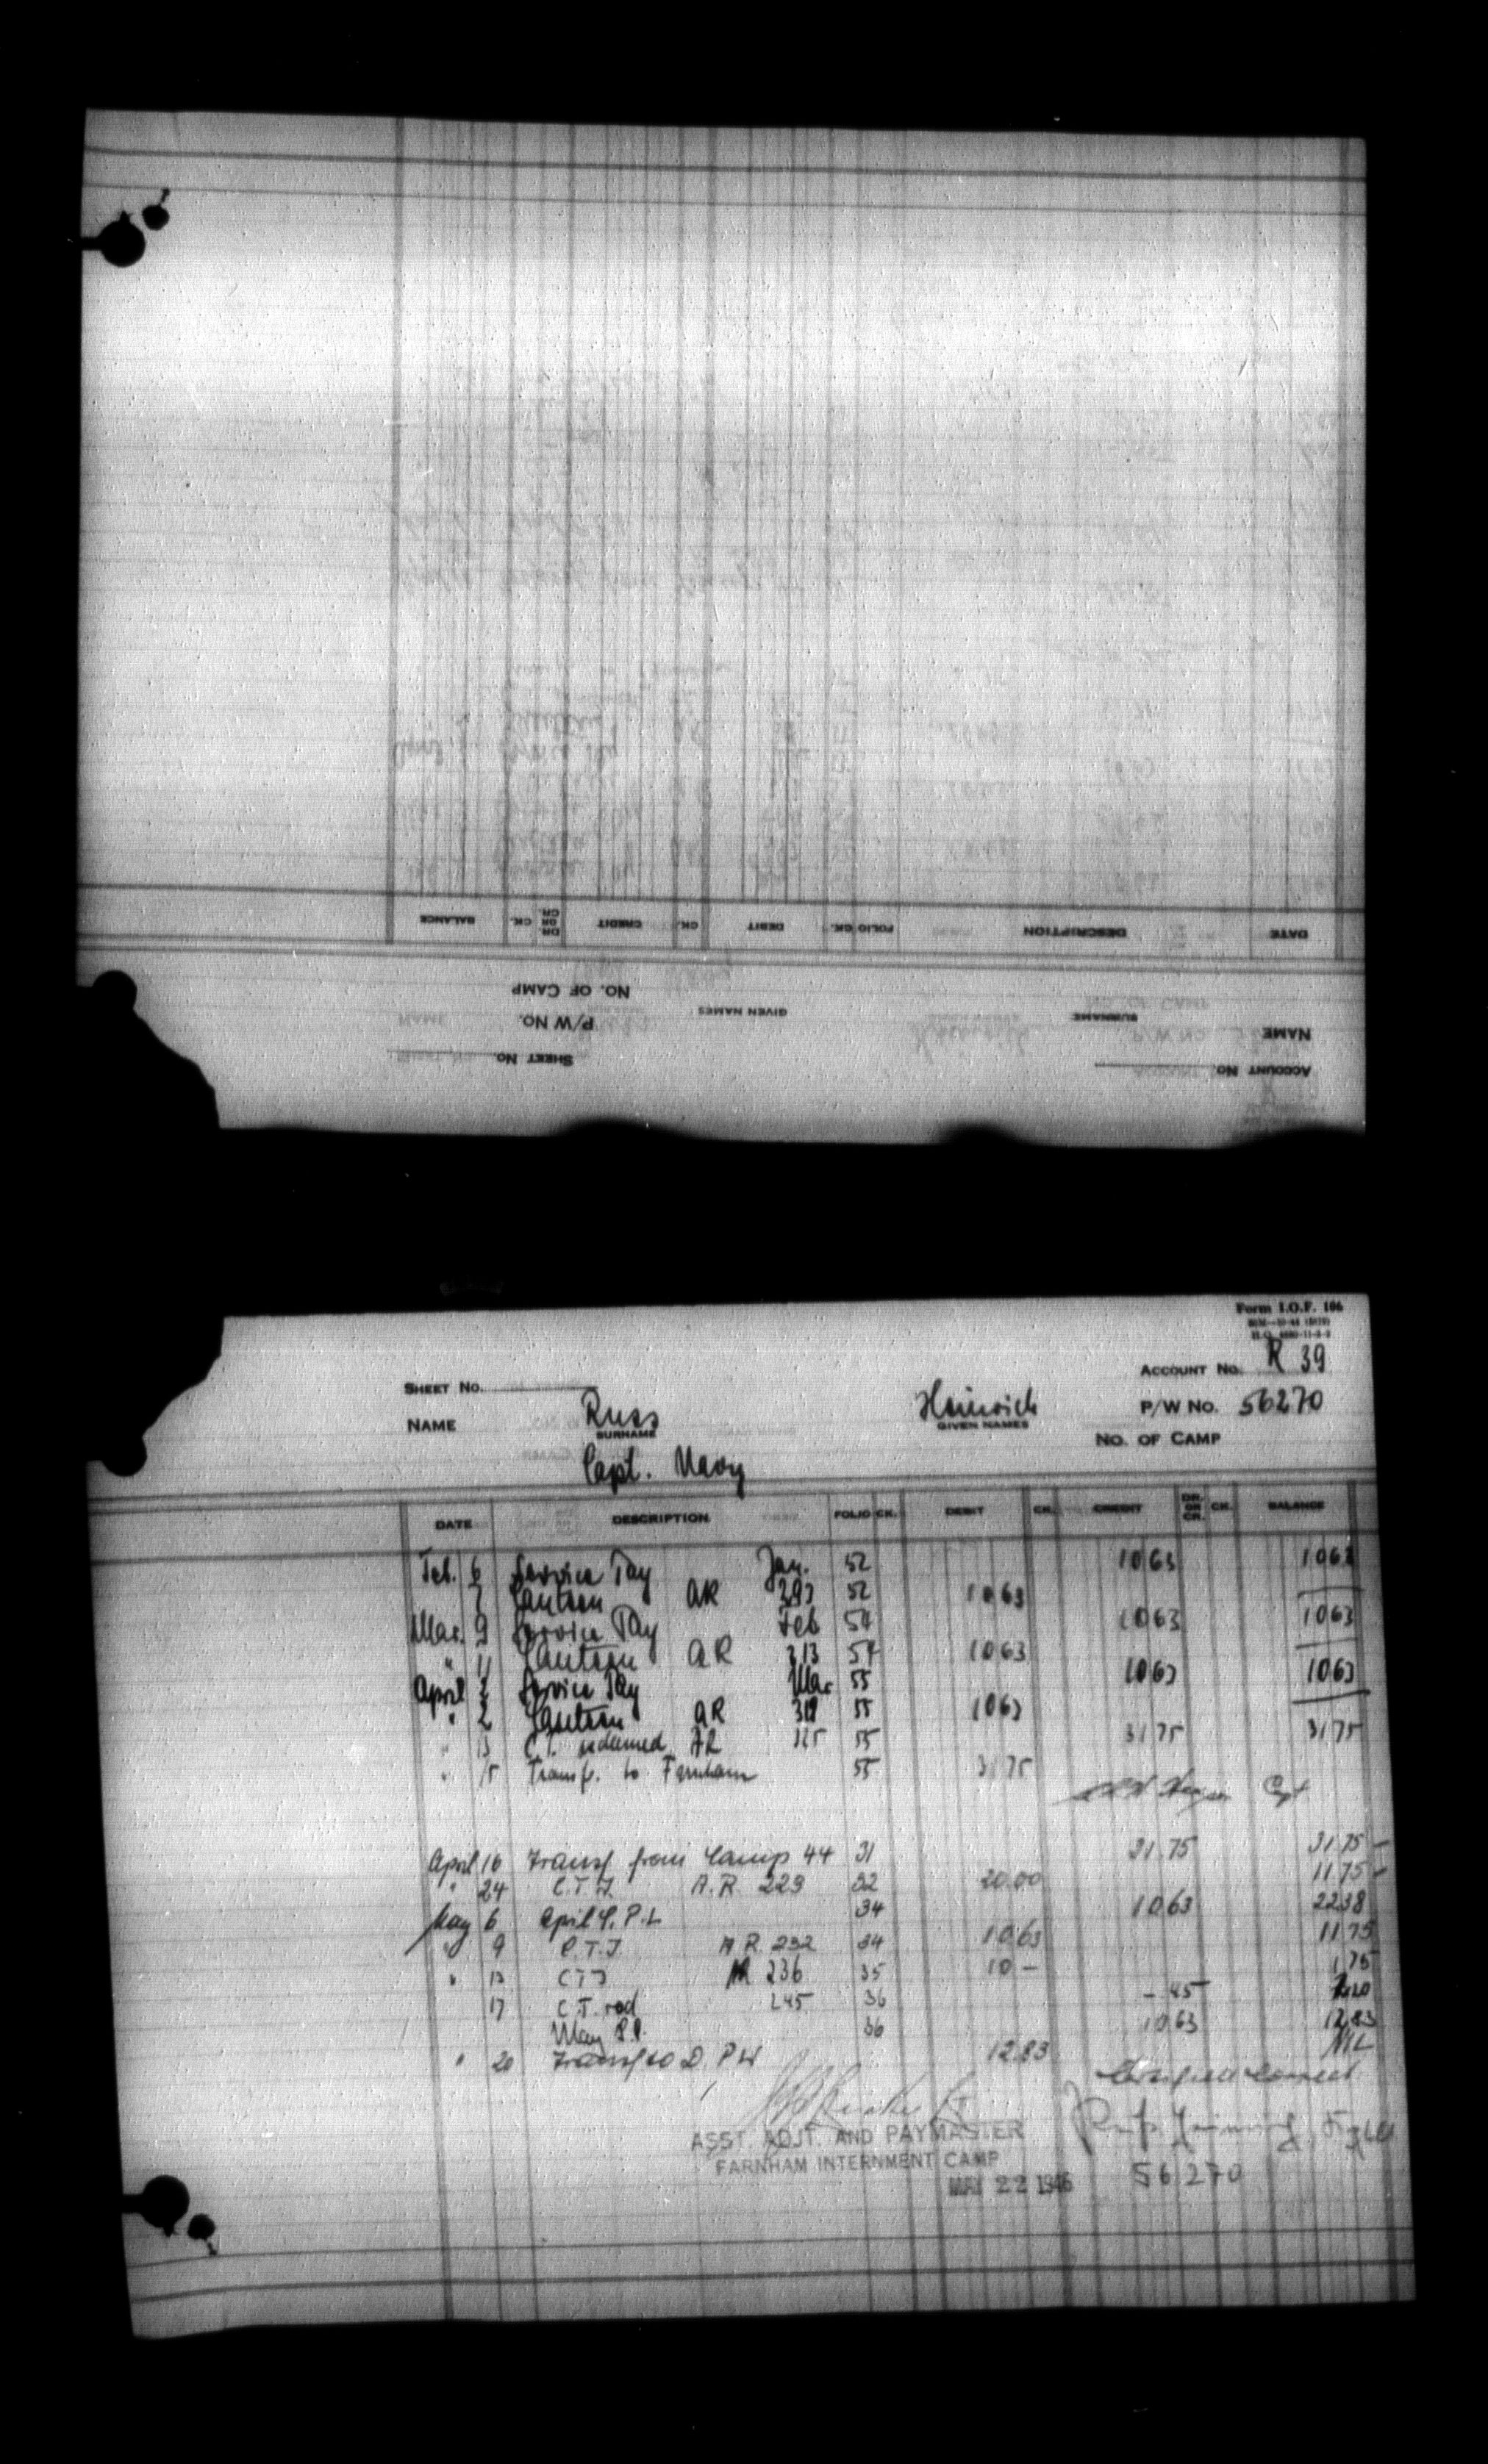 DATE DESCRIPTION FOLIO CK. DEBIT CK. CREDIT DR. OR CR. CK. BALANCE
NO. OF CAMP
GIVEN NAMES SURNAME
P/W NO. NAME
SHEET NO. ACCOUNT NO.
Form I.O.F. 106
ACCOUNT NO. R 39
SHEET NO.
NAME Russ Heinrich P/W NO. 56270
SURNAME GIVEN NAMES
NO. OF CAMP
Capt. Navy
DATE DESCRIPTION FOLIO CK. DEBIT CK. CREDIT DR. OR CR. CK. BALANCE
Feb. 6 Service Pay Jan. 52 10 63 10 63
7 Canteen AR 293 52 10 63
Mar. 9 Service Pay Feb 54 10 63 10 63
" 11 Canteen AR 313 54 10 63
April 2 Service Pay Mar 55 10 63 10 63
" 2 Canteen AR 318 55 10 63
" 13 C.T. redeemed AR 55 31 75 31 75
" 15 Transf. to Farnham 55 31 75
Capt
April 16 Transf from Camp 44 31 31 75 31 75 -
" 24 C.T.I. A.R. 223 32 20.00 11 75 -
May 6 April S.P.L 34 10 63 22 38
" 9 C.T.I A.R. 232 34 10 63 11 75
" 13 C T I AR 236 35 10 - 1 75
17 C.T. red 245 36 - 45 2 20
May S.P. 36 10 63 12 83
" 20 Transf to D.P.W 12.83 NIL
ASST. ADJT. AND PAYMASTER
FARNHAM INTERNMENT CAMP
MAY 22 1946 56270